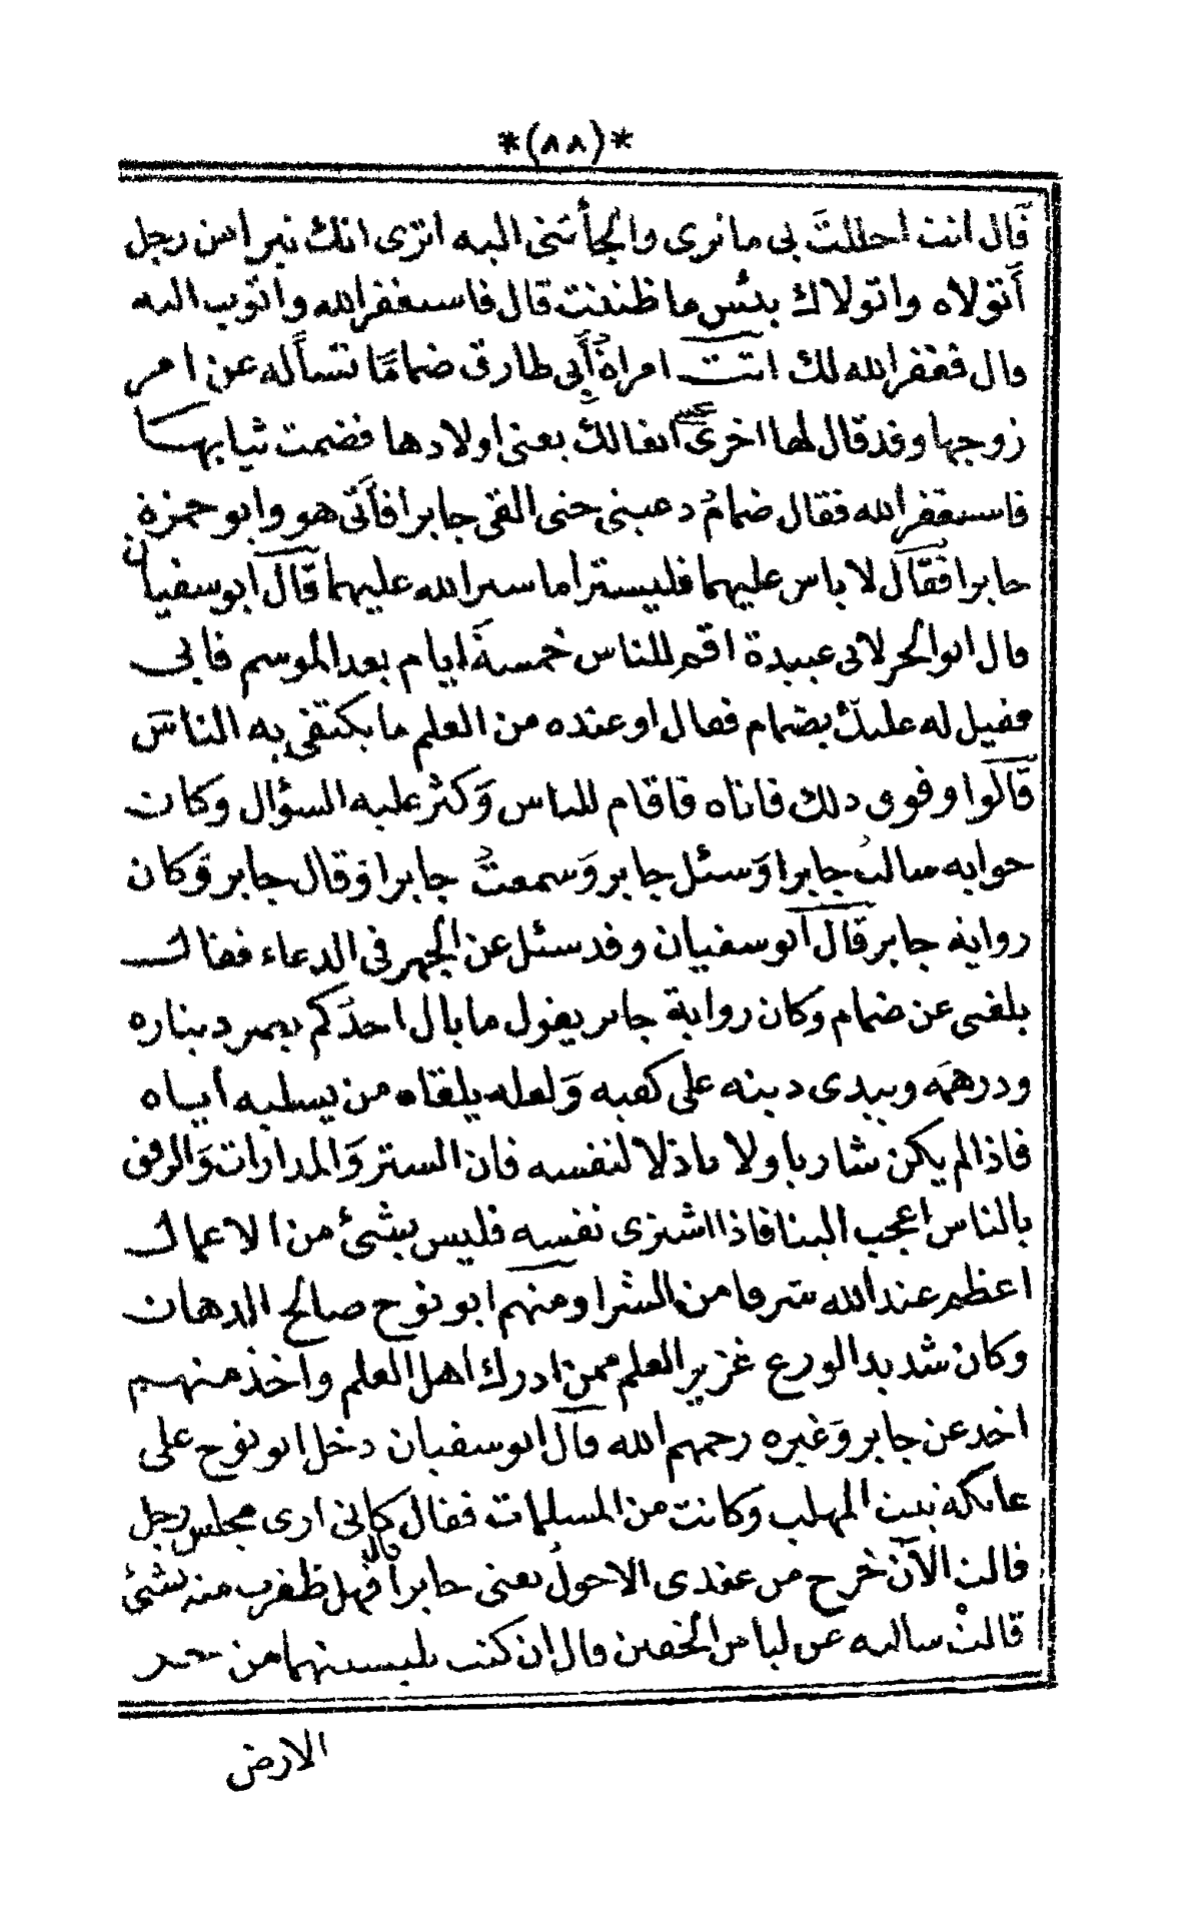 *(٨٨)*
قال انت احللت بي ما نرى والجأتنى اليه اترى انك تبرا من رجل
أتولاه واتولاك بئس ما ظننت قال فاستغفر الله واتوب اليه
قال فغفر الله لك اتت امراة أبي طارق ضماما تسأله عن امر
زوجها وقد قال لها اخرى انغالك يعنى اولادها فضمت ثيابها
فاستغفر الله فقال ضمام دعينى حتى القى جابرا فأتى هو وابو حمزة
جابرا فقال لا باس عليهما فليسترا ما ستر الله عليهما قال ابو سفيان
قال ابو الحر لابى عبيدة اقم للناس خمسة ايام بعد الموسم فابى
فقيل له عليك بضمام فقال او عنده من العلم ما يكتفى به الناس
قالوا وفوق ذلك فاتاه فاقام للناس وكثر عليه السؤال وكان
جوابه سالت جابرا وسئل جابر وسمعت جابرا وقال جابر وكان
رواية جابر قال ابو سفيان وقد سئل عن الجهر فى الدعاء فقال
بلغنى عن ضمام وكان رواية جابر يقول ما بال احدكم يصر ديناره
ودرهمه ويبدى دينه على كفيه ولعله يلقاه من يسلبه اياه
فاذا لم يكن شاريا ولا باذلا لنفسه فان الستر والمدارات والرفق
بالناس اعجب الينا فاذا اشترى نفسه فليس بشئ من الاعمال
اعظم عند الله شرفا من الشرا ومنهم ابو نوح صالح الدهان
وكان شديد الورع غزير العلم ممن ادرك اهل العلم واخذ منهم
اخد عن جابر وغيره رحمهم الله قال ابو سفيان دخل ابو نوح على
عاتكة بنت المهلب وكانت من المسلمات فقال كانى ارى مجلس رجل
قالت الآن خرج من عندى الاحول يعنى جابرا قال فهل ظفرت منه بشئ
قالت سالته عن لباس الخفين قال ان كنت تلبسينهما من حر
الارض